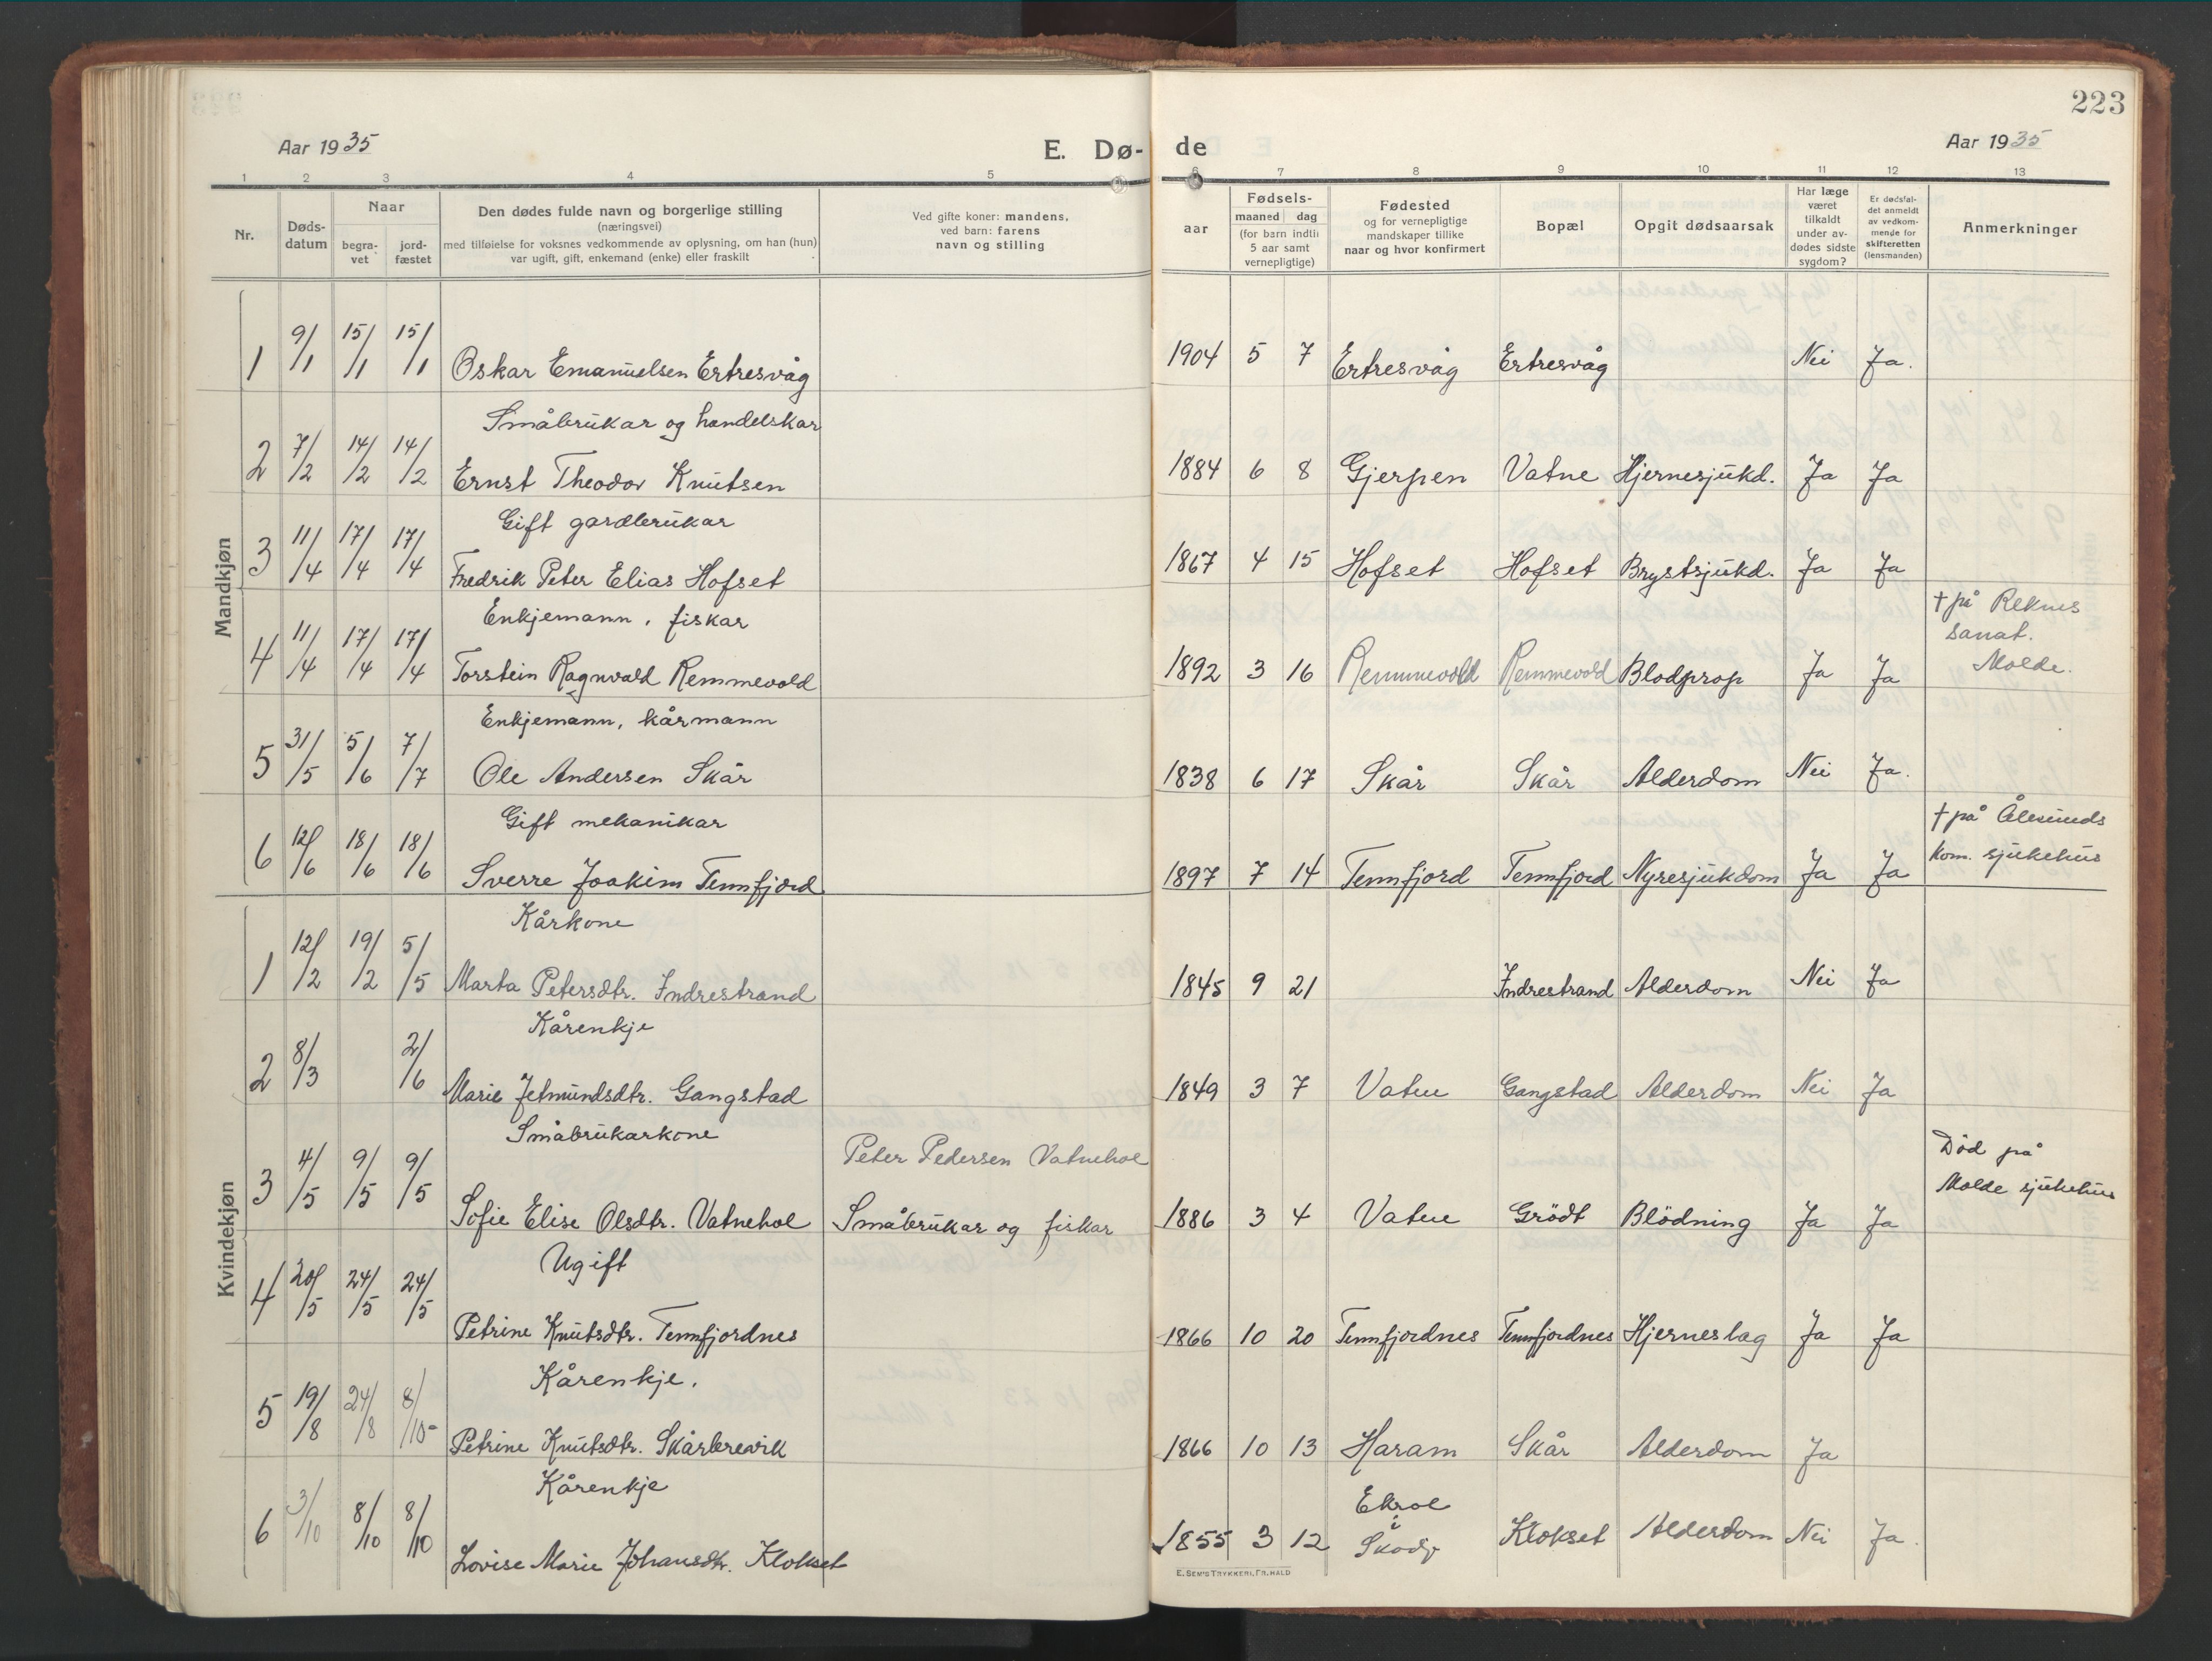 223
Aar 1935 E. Dø- de Aar 1935
1 2 3 4 5 6 7 8 9 10 11 12 13
Nr.
Døds-
datum
Naar
begra-
vet
jord-
fæstet
Den dødes fulde navn og borgerlige stilling
(næringsvei)
med tilføielse for voksnes vedkommende av oplysning, om han (hun)
var ugift, gift, enkemand (enke) eller fraskilt
Ved gifte koner: mandens,
ved barn: farens
navn og stilling
aar
Fødsels-
maaned dag
(for barn indtil
5 aar samt
vernepligtige)
Fødested
og for vernepligtige
mandskaper tillike
naar og hvor konfirmert
Bopæl
Opgit dødsaarsak
Har læge
været
tilkaldt
under av-
dødes sidste
sygdom?
Er dødsfal-
det anmeldt
av vedkom-
mende for
skifteretten
(lensmanden)
Anmerkninger
Mandkjøn
1 9/1 15/1 15/1 Oskar Emanuelsen Ertresvåg 1904 5 7 Ertresvåg Ertresvåg Nei Ja.
Småbrukar og handelskar
2 7/2 14/2 14/2 Ernst Theodor Knutsen 1884 6 8 Gjerpen Vatne Hjernesjukd. Ja Ja
Gift gardbrukar
3 11/4 17/4 17/4 Fredrik Peter Elias Hofset 1867 4 15 Hofset Hofset Brystsjukd. Ja Ja
Enkjemann, fiskar
4 11/4 17/4 17/4 Torstein Ragnvald Remmevold 1892 3 16 Remmevold Remmevold Blodprop Ja Ja
† på Reknes
sanat.
Molde.
Enkjemann, kårmann
5 31/5 5/6 7/7 Ole Andersen Skår 1838 6 17 Skår Skår Alderdom Nei Ja.
Gift mekanikar
6 12/6 18/6 18/6 Sverre Joakim Tennfjord 1897 7 14 Tennfjord Tennfjord Nyresjukdom Ja Ja
† på Ålesunds
kom. sjukehus
Kvindekjøn
Kårkone
1 12/2 19/2 5/5 Marta Petersdtr. Indrestrand 1845 9 21 Indrestrand Alderdom Nei Ja
Kårenkje
2 8/3 2/6 Marie Jetmundsdtr. Gangstad 1849 3 7 Vatne Gangstad Alderdom Nei Ja
Småbrukarkone Peter Pedersen Vatnehol
3 4/5 9/5 9/5 Sofie Elise Olsdtr. Vatnehol Småbrukar og fiskar 1886 3 4 Vatne Grödt Blödning Ja Ja
Död på
Molde sjukehus
Ugift
4 20/5 24/5 24/5 Petrine Knutsdtr. Tennfjordnes 1866 10 20 Tennfjordnes Tennfjordnes Hjerneslag Ja Ja
Kårenkje.
5 19/8 24/8 8/10 Petrine Knutsdtr. Skårbrevik 1866 10 13 Haram Skår Alderdom Ja
Kårenkje
6 3/10 8/10 8/10 Lovise Marie Johansdtr. Klokset 1855 3 12 Ekrol
i
Skodje Klokset Alderdom Nei Ja.
E. SEM'S TRYKKERI, FR.HALD